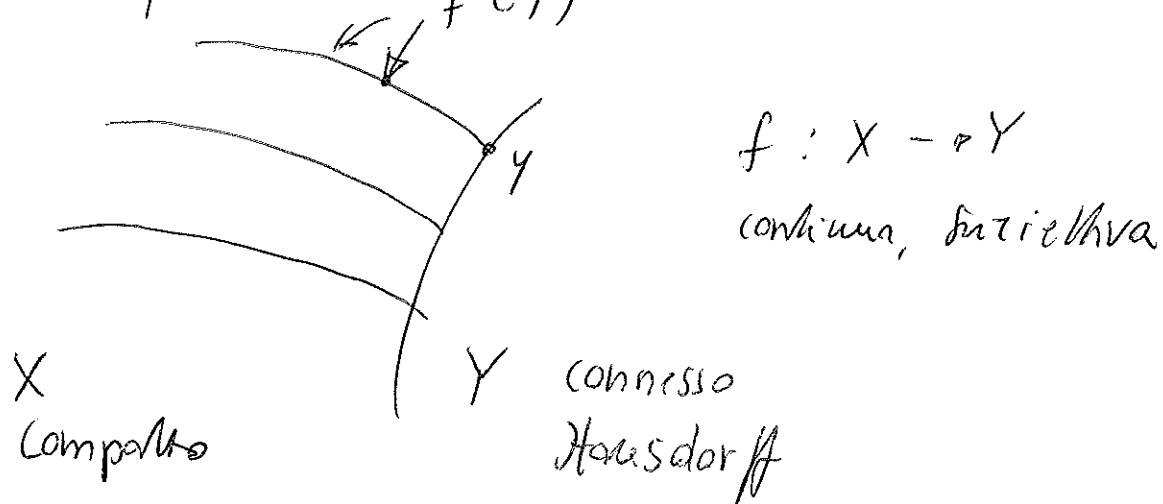 f : X → Y
continua, suriettiva
y
X
Compatto
Y connesso
Hausdorff